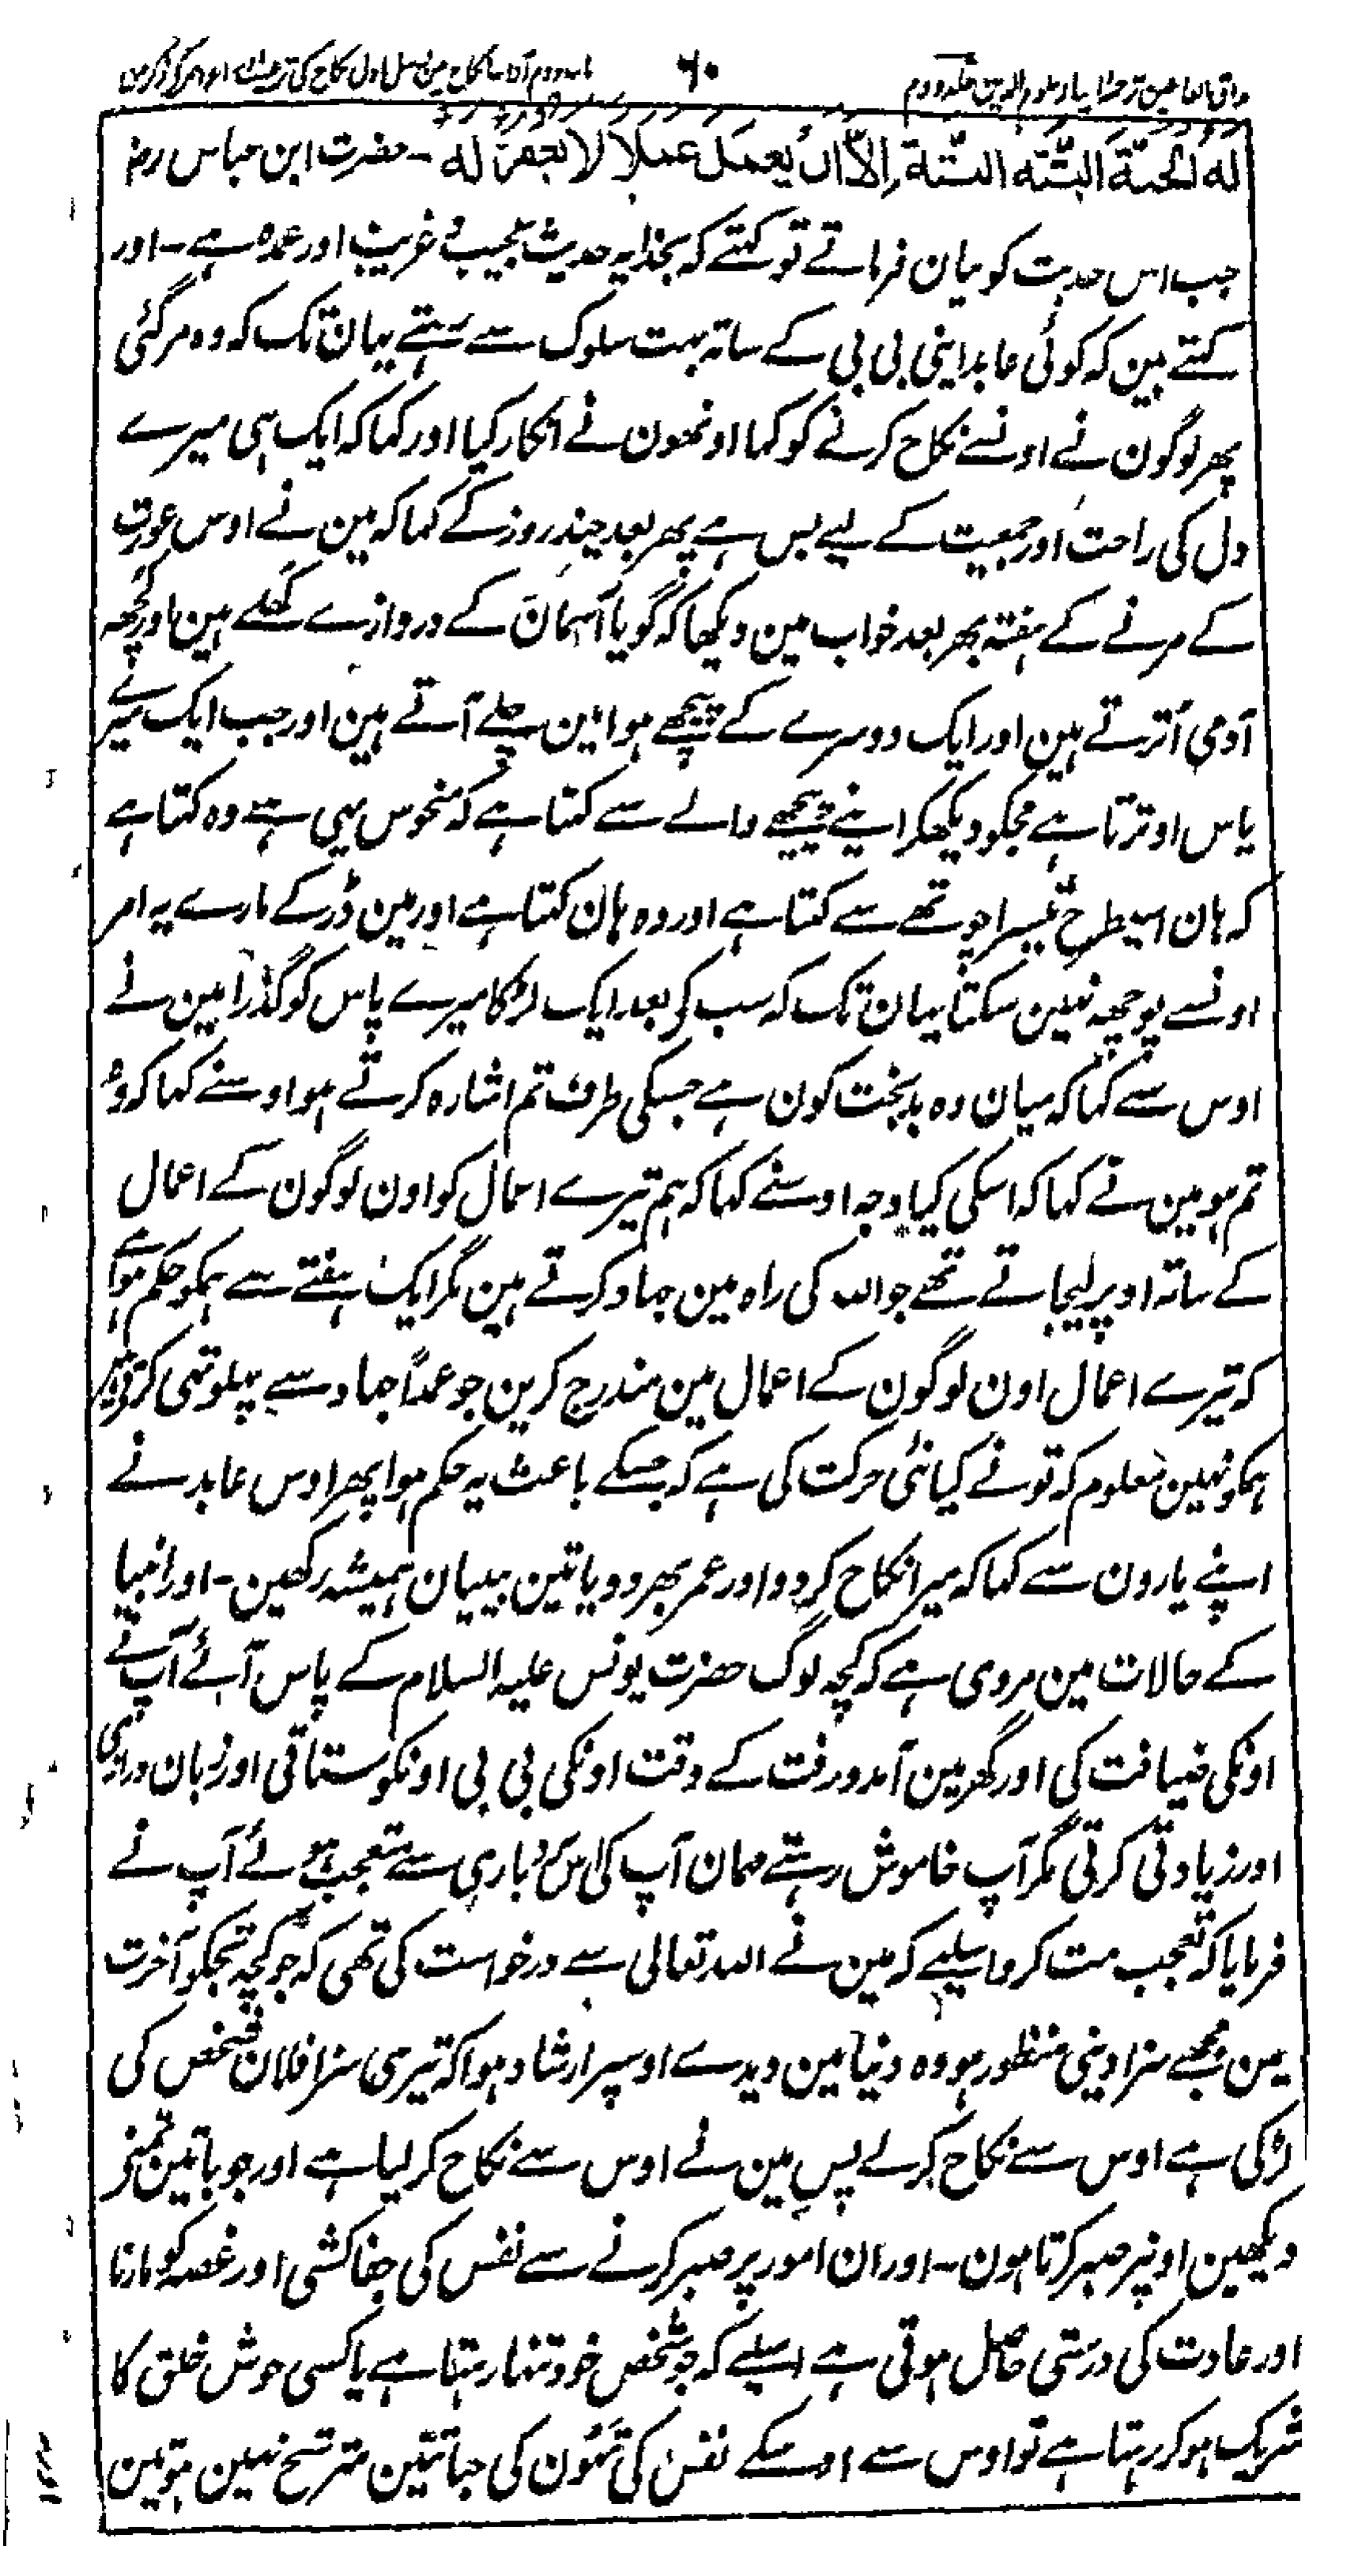 ۶۰
له الجنة البتة البتة الا ان یعمل عملا لا یغفر له - حضرت ابن عباس رض
جب اس حدیث کو بیان فرماتے تو کہتے کہ بخدا یہ حدیث عجیب و غریب اور عمدہ ہے - اور
کہتے ہین کہ کوئی عابد اپنی بی بی کے ساتہ بہت سلوک سے رہتے یہان تک کہ وہ مر گئی
پھر لوگون نے اونسے نکاح کرنے کو کہا اونھون نے انکار کیا اور کہا کہ ایک ہی میرے
دل کی راحت اور جمعیت کے لیے بس ہے پھر بعد چند روز کے کہا کہ مین نے اوس عورت
کے مرنے کے ہفتہ بھر بعد خواب مین دیکھا کہ گویا آسمان کے دروازے کھلے ہین اور کچھہ
آدمی اترتے ہین اور ایک دوسرے کے پیچھے ہوا مین چلے آتے ہین اور جب ایک میرے
پاس اوترتا ہے مجکو دیکھکر اپنے پیچھے والے سے کہتا ہے کہ منحوس یہی ہے وہ کہتا ہے
کہ ہان اسیطرح تیسرا چوتھے سے کہتا ہے اور وہ ہان کہتا ہے اور مین ڈر کے مارے یہ امر
اونسے پوچھہ نہین سکتا یہان تک کہ سب کی بعد ایک لڑکا میرے پاس کو گذرا مین نے
اوس سے کہا کہ میان وہ بدبخت کون ہے جسکی طرف تم اشارہ کرتے ہو اوسنے کہا کہ وہ
تم ہو مین نے کہا کہ اسکی کیا وجہ اوسنے کہا کہ ہم تیرے اعمال کو اون لوگون کے اعمال
کے ساتہ اوپر لیجاتے تھے جو اللہ کی راہ مین جہاد کرتے ہین مگر ایک ہفتے سے ہمکو حکم ہوا ہے
کہ تیرے اعمال اون لوگون کے اعمال مین مندرج کرین جو عمداً جہاد سے پہلوتہی کرتے ہین
ہمکو نہین معلوم کہ تونے کیا نئی حرکت کی ہے کہ جسکے باعث یہ حکم ہوا پھر اوس عابد نے
اپنے یارون سے کہا کہ میرا نکاح کردو اور عمر بھر دو یا تین بیبیان ہمیشہ رکھین - اور انبیا
کے حالات مین مروی ہے کہ کچہ لوگ حضرت یونس علیہ السلام کے پاس آئے آپ نے
اونکی ضیافت کی اور گھر مین آمدورفت کے وقت اونکی بی بی اونکو ستاتی اور زبان درازی
اور زیادتی کرتی مگر آپ خاموش رہتے مہمان آپ کی اس بردباری سے متعجب ہوئے آپ نے
فرمایا کہ تعجب مت کرو اسلیے کہ مین نے اللہ تعالی سے درخواست کی تھی کہ جو کچہ تجکو آخرت
مین مجھے سزا دینی منظور ہو وہ دنیا مین دیدے اوسپر ارشاد ہوا کہ تیری سزا فلان شخص کی
لڑکی ہے اوس سے نکاح کرلے پس مین نے اوس سے نکاح کر لیا ہے اور جو باتین تمنے
دیکھین اونپر صبر کرتا ہون - اور ان امور پر صبر کرنے سے نفس کی جفاکشی اور غصہ کو مارنا
اور عادت کی درستی حاصل ہوتی ہے اسلیے کہ جو شخص خود تنہا رہتا ہے یا کسی خوش خلق کا
شریک ہو کر رہتا ہے تو اوس سے اوسکے نفس کی خباثتین مترشح نہین ہوتین